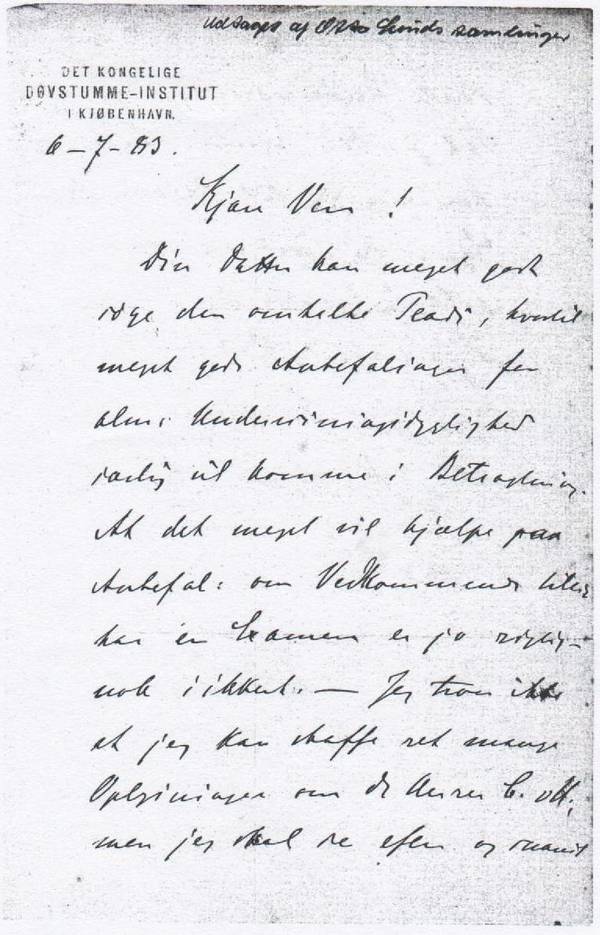 Udtaget af Otto Lunds samlinger
DET KONGELIGE
DØVSTUMME-INSTITUT
I KJØBENHAVN.
6-7-83.
Kjære Ven!
Din Datter kan meget godt
søge den omtalte Plads, hvortil
meget gode Anbefalinger for
alm: Undervisningsdygtighed
særlig vil komme i Betragtning.
At det meget vil hjælpe paa
Anbefal: om Vedkommende tillige
har en Examen er jo rigtig-
nok sikkert. — Jeg troer ikke
at jeg kan skaffe ret mange
Oplysninger om
men jeg skal se efter og snarest